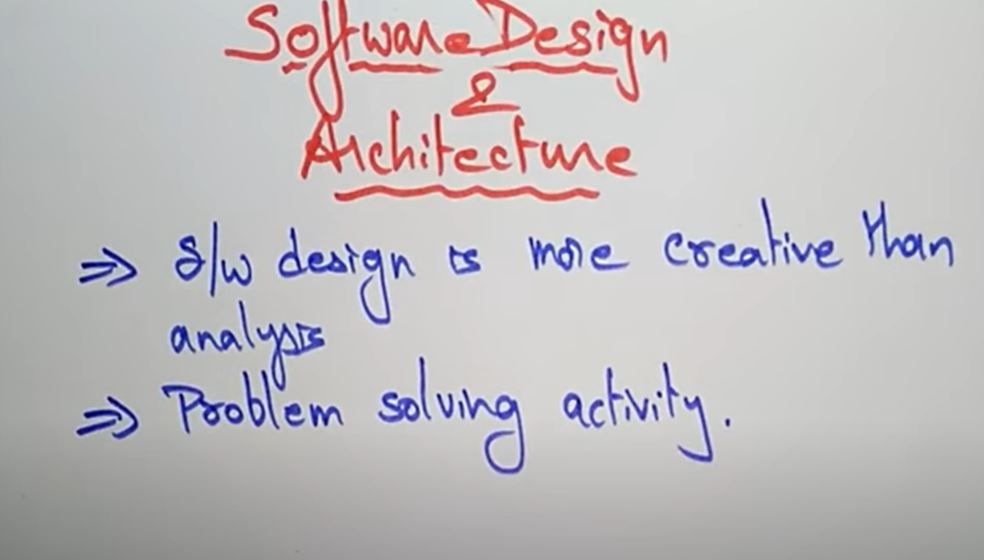 Software Design
&
Architecture
⇒ S/w design is more creative than
analysis
⇒ Problem solving activity.